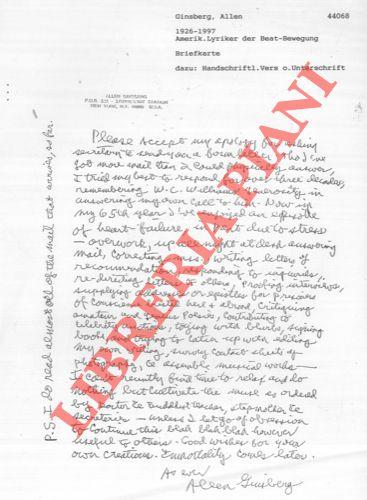 Ginsberg, Allen 44068
1926-1997
Amerik.Lyriker der Beat-Bewegung
Briefkarte
dazu: Handschriftl.Vers o.Unterschrift
ALLEN GINSBERG
P.O.B. 582 - STUYVESANT STATION
NEW YORK, N.Y. 10009 U.S.A.
Please accept my apology for asking
secretary to send you a form letter, tho I've
got more mail than I could answer,
I tried my best to respond for over three decades,
remembering W.C. Williams' generosity in
answering my own call to him. Now in
my 65th year I've an episode
of heart-failure, due to stress
— overwork, up all night at desk answering
mail, correcting, writing letters of
recommendation, responding to inquiries,
re-directing letters to others, proofing interviews,
supplying or epistles for prisoners
of conscience & abroad, critiquing
amateur and Poesis, contributing to
celebrate, toying with blurbs, signing
books and trying to catch up with editing
my own, survey contact sheets of
photography, & assemble musical works —
I can't recently find time to relax and do
nothing but cultivate the muse as ordered
by doctor & Buddhist teacher, stepmother, &
secretaries — unless I let go of obsession
to continue this blah blah blah however
useful to others. Good wishes for your
own creations. Immortality comes later.
As ever
Allen Ginsberg
P.S. I do read almost all of the mail that arrives, so far.
LIBRERIA PIANI